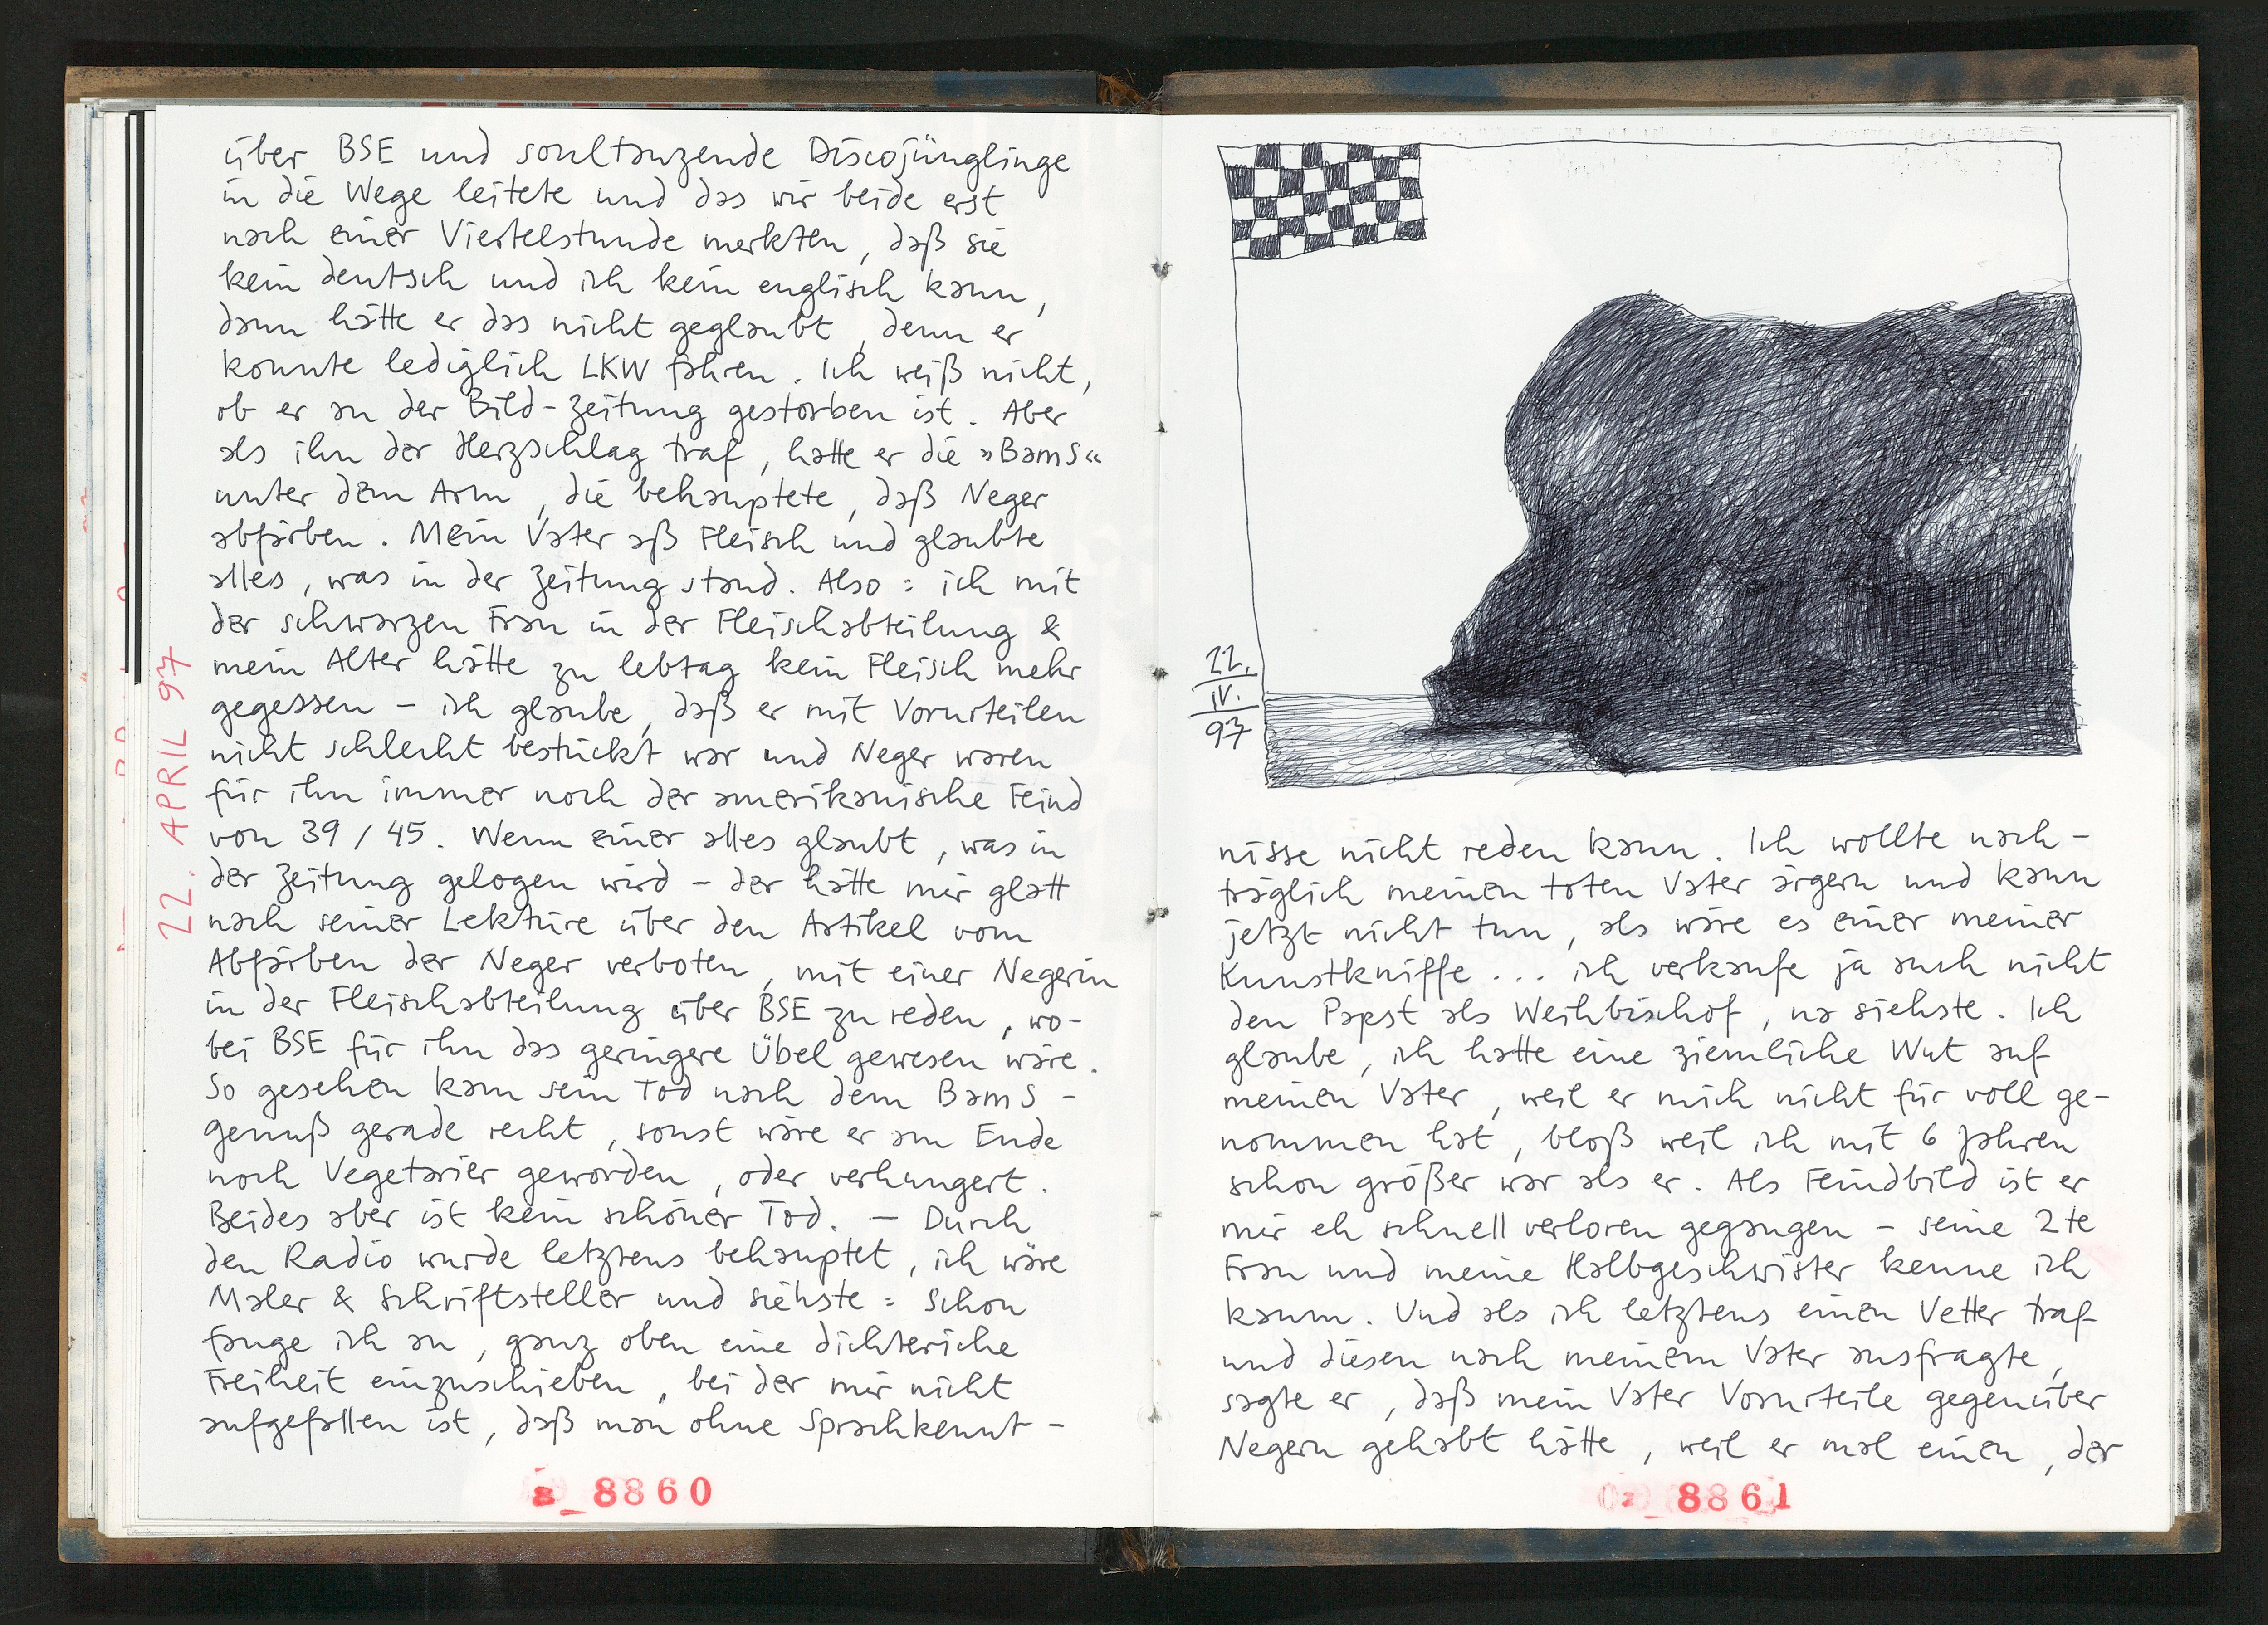 über BSE und soultanzende Discojünglinge
in die Wege leitete und das wir beide erst
nach einer Viertelstunde merkten, daß sie
kein deutsch und ich kein englisch kann,
dann hätte er das nicht geglaubt, denn er
konnte lediglich LKW fahren. Ich weiß nicht,
ob er an der Bild-Zeitung gestorben ist. Aber
als ihn der Herzschlag traf, hatte er die »BamS«
unter dem Arm, die behauptete, daß Neger
abfärben. Mein Vater aß Fleisch und glaubte
alles, was in der Zeitung stand. Also: ich mit
der schwarzen Frau in der Fleischabteilung &
mein Alter hätte zu lebtag kein Fleisch mehr
gegessen – ich glaube, daß er mit Vorurteilen
nicht schlecht bestückt war und Neger waren
für ihn immer noch der amerikanische Feind
von 39/45. Wenn einer alles glaubt, was in
der Zeitung gelogen wird – der hätte mir glatt
nach seiner Lektüre über den Artikel vom
Abfärben der Neger verboten, mit einer Negerin
in der Fleischabteilung über BSE zu reden, wo-
bei BSE für ihn das geringere Übel gewesen wäre.
So gesehen kam sein Tod nach dem BamS-
genuß gerade recht, sonst wäre er am Ende
noch Vegetarier geworden, oder verhungert.
Beides aber ist kein schöner Tod. – Durch
den Radio wurde letztens behauptet, ich wäre
Maler & Schriftsteller und siehste: Schon
fange ich an, ganz oben eine dichteriche
Freiheit einzuschieben, bei der mir nicht
aufgefallen ist, daß man ohne Sprachkennt-
22. APRIL 97
8860
22.
IV.
97
nisse nicht reden kann. Ich wollte nach-
träglich meinen toten Vater ärgern und kann
jetzt nicht tun, als wäre es einer meiner
Kunstkniffe... ich verkaufe ja auch nicht
den Papst als Weihbischof, na siehste. Ich
glaube, ich hatte eine ziemliche Wut auf
meinen Vater, weil er mich nicht für voll ge-
nommen hat, bloß weil ich mit 6 Jahren
schon größer war als er. Als Feindbild ist er
mir eh schnell verloren gegangen – seine 2te
Frau und meine Halbgeschwister kenne ich
kaum. Und als ich letztens einen Vetter traf
und diesen nach meinem Vater ausfragte,
sagte er, daß mein Vater Vorurteile gegenüber
Negern gehabt hätte, weil er mal einen, der
8861